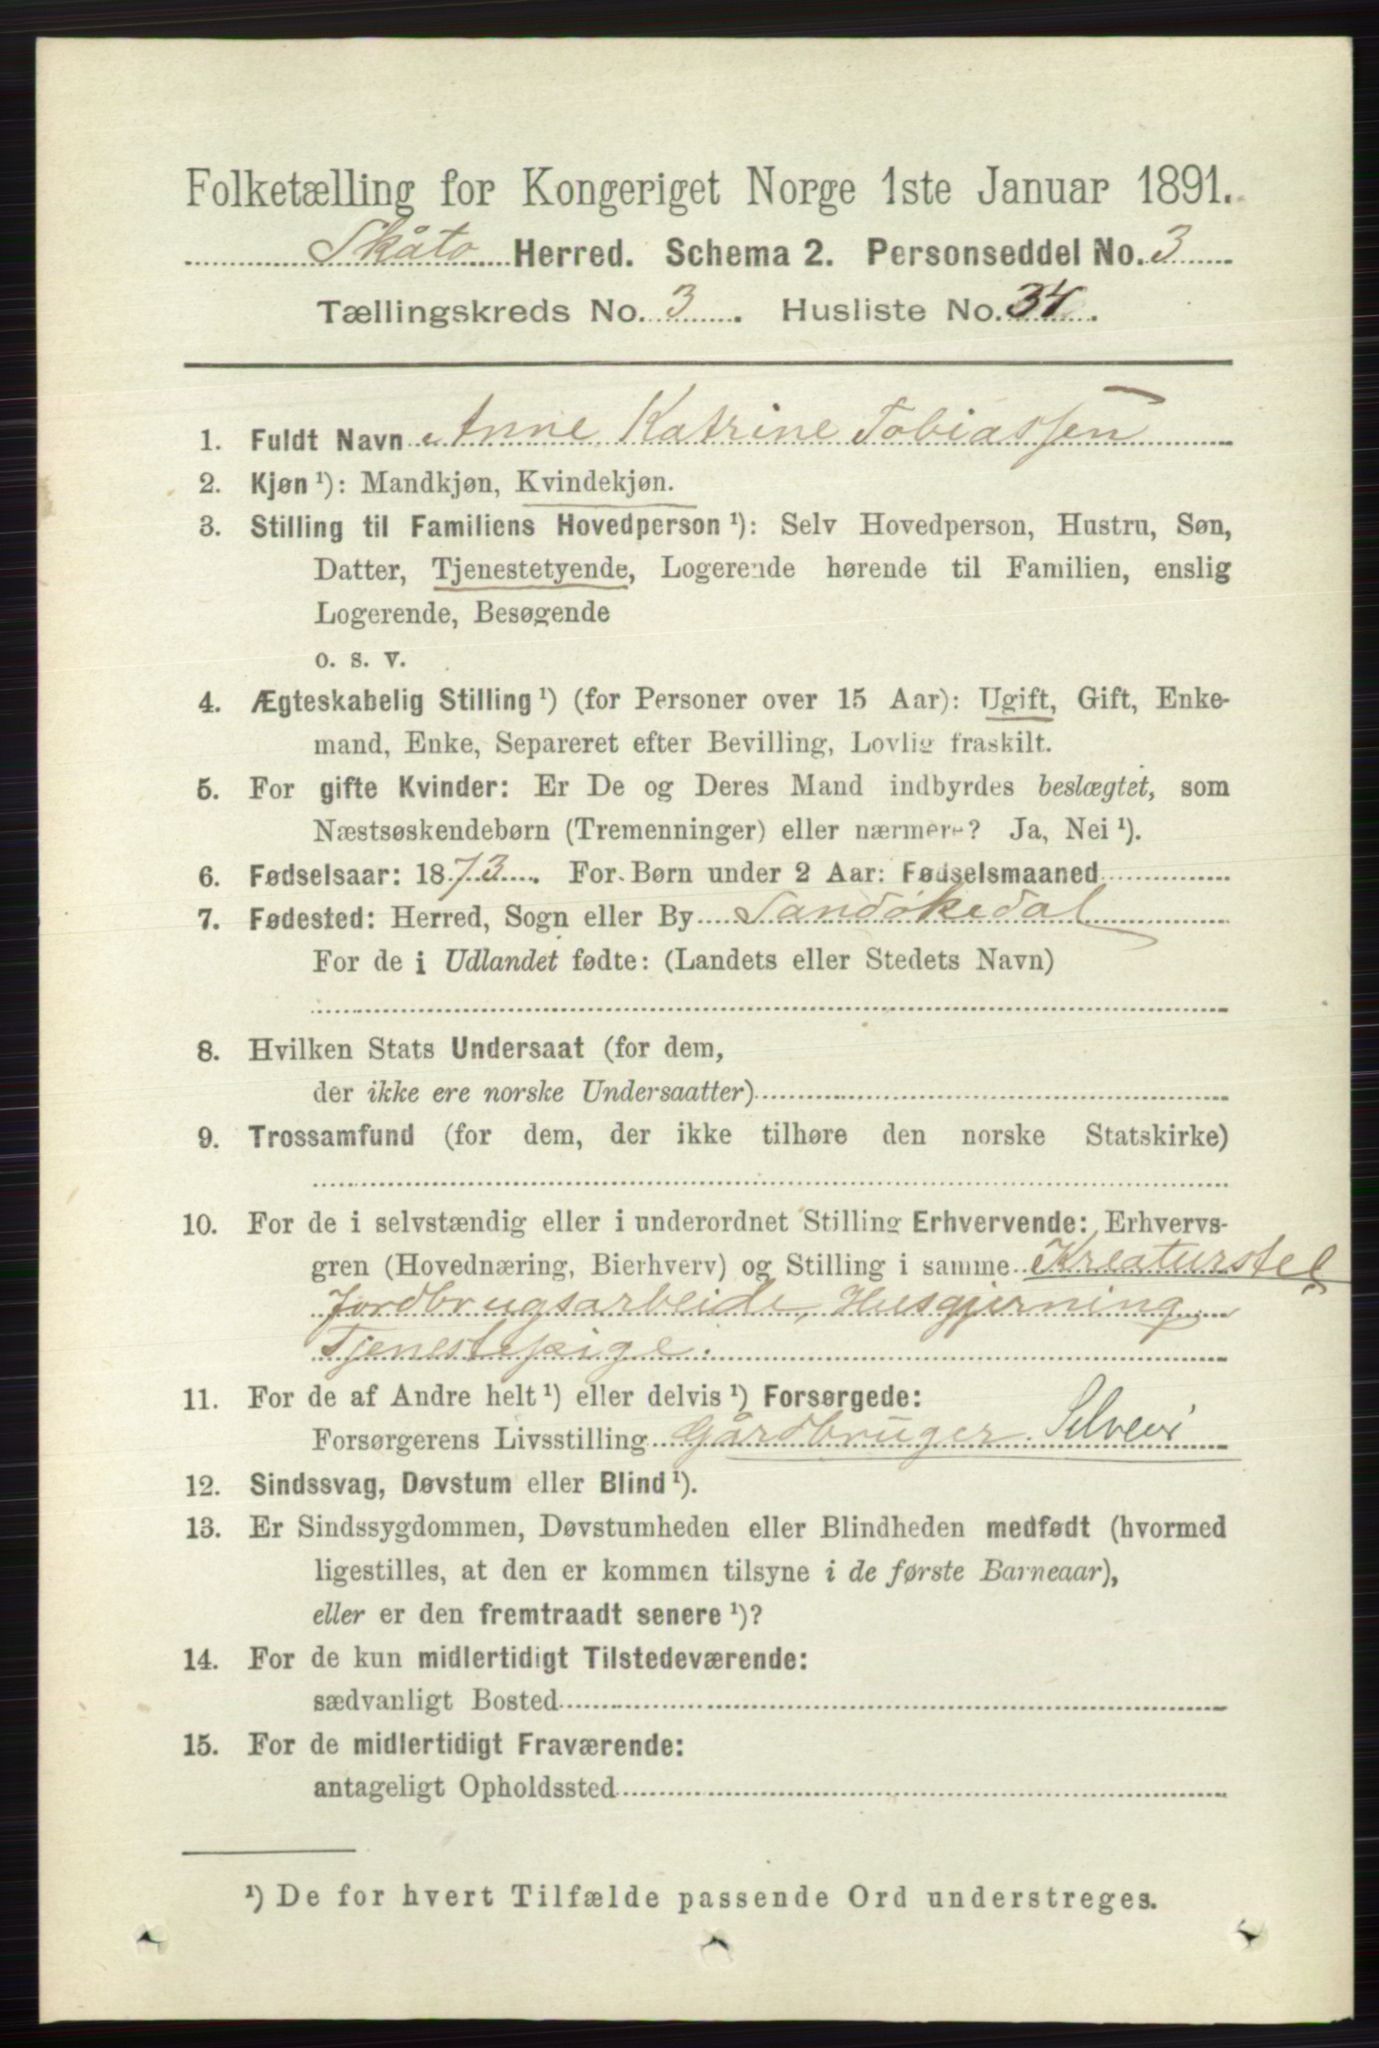 Folketælling for Kongeriget Norge 1ste Januar 1891.
Skåtø Herred. Schema 2. Personseddel No. 3
Tællingskreds No. 3. Husliste No. 34.
1. Fuldt Navn Anne Katrine Tobiassen
2. Kjøn ¹): Mandkjøn, Kvindekjøn.
3. Stilling til Familiens Hovedperson ¹): Selv Hovedperson, Hustru, Søn,
Datter, Tjenestetyende, Logerende hørende til Familien, enslig
Logerende, Besøgende
o. s. v.
4. Ægteskabelig Stilling ¹) (for Personer over 15 Aar): Ugift, Gift, Enke-
mand, Enke, Separeret efter Bevilling, Lovlig fraskilt.
5. For gifte Kvinder: Er De og Deres Mand indbyrdes beslægtet, som
Næstsøskendebørn (Tremenninger) eller nærmere? Ja, Nei ¹).
6. Fødselsaar: 1873. For Børn under 2 Aar: Fødselsmaaned
7. Fødested: Herred, Sogn eller By Sandøkedal
For de i Udlandet fødte: (Landets eller Stedets Navn)
8. Hvilken Stats Undersaat (for dem,
der ikke ere norske Undersaatter)
9. Trossamfund (for dem, der ikke tilhøre den norske Statskirke)
10. For de i selvstændig eller i underordnet Stilling Erhvervende: Erhvervs-
gren (Hovednæring, Bierhverv) og Stilling i samme Kreaturstel
Jordbrugsarbeide, Husgjerning
Tjenestepige.
11. For de af Andre helt ¹) eller delvis ¹) Forsørgede:
Forsørgerens Livsstilling Gårdbruger Selveier
12. Sindssvag, Døvstum eller Blind ¹).
13. Er Sindssygdommen, Døvstumheden eller Blindheden medfødt (hvormed
ligestilles, at den er kommen tilsyne i de første Barneaar),
eller er den fremtraadt senere ¹)?
14. For de kun midlertidigt Tilstedeværende:
sædvanligt Bosted
15. For de midlertidigt Fraværende:
antageligt Opholdssted
¹) De for hvert Tilfælde passende Ord understreges.